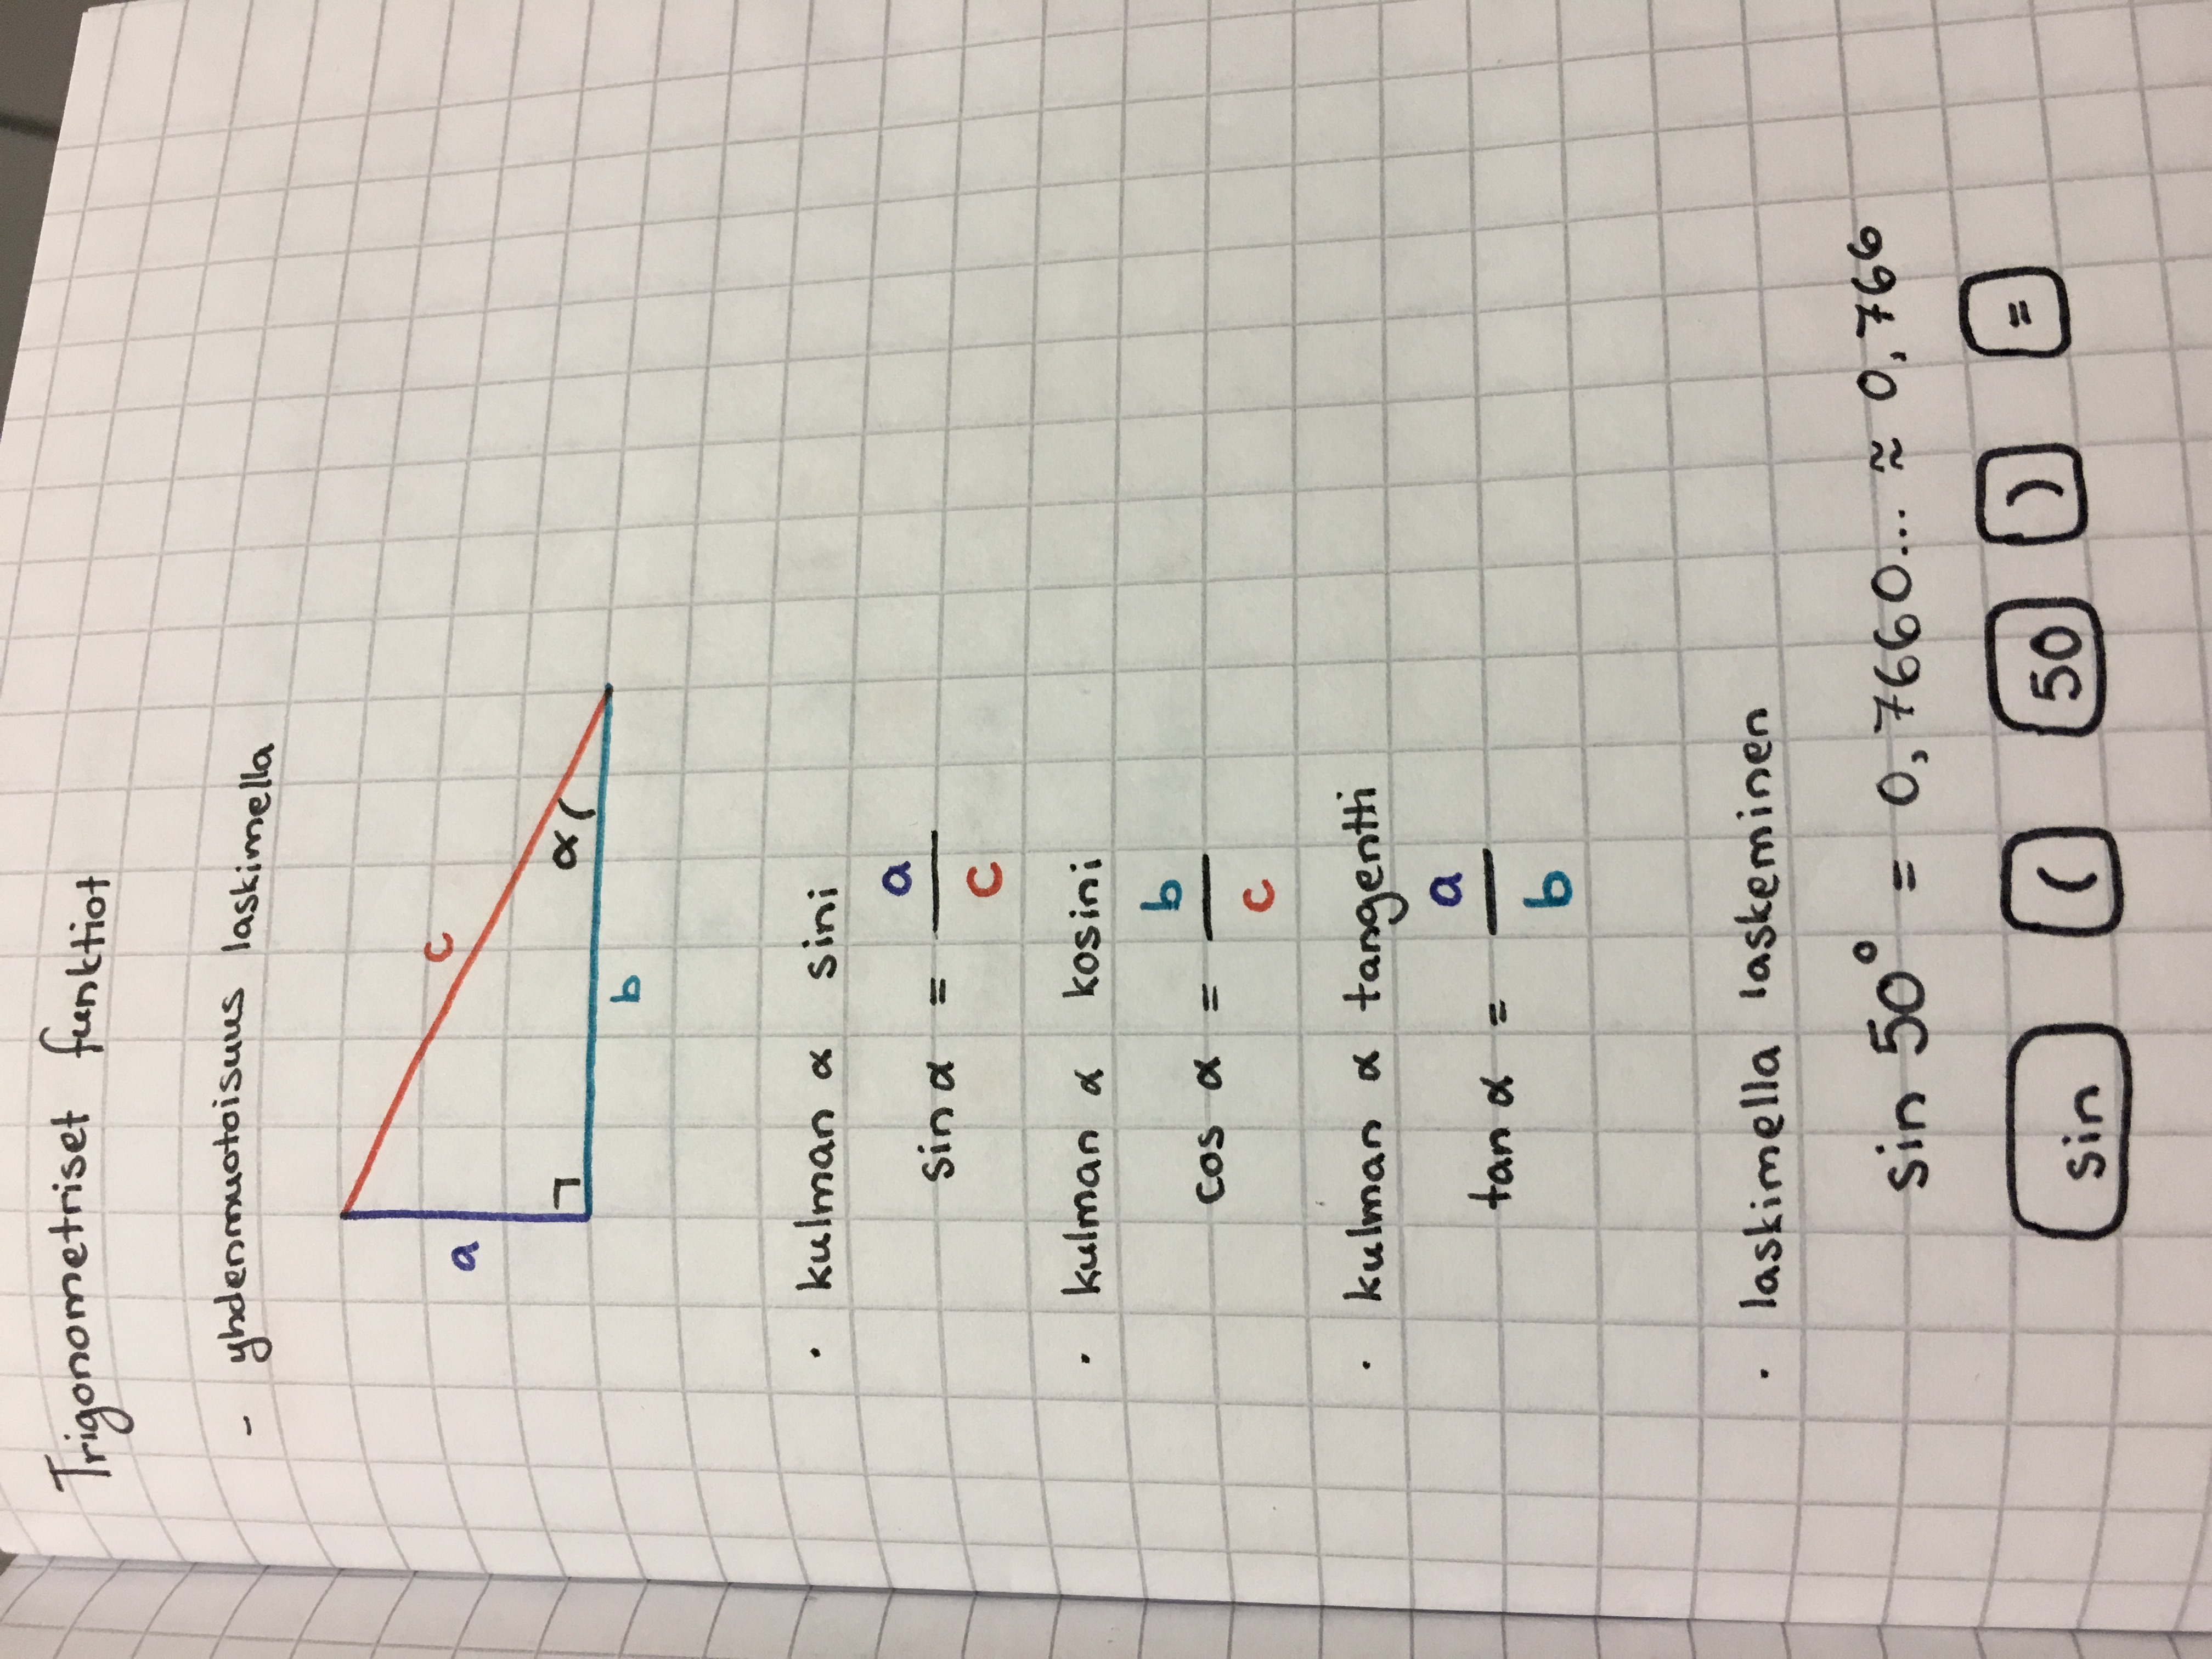 Trigonometriset funktiot
- yhdenmuotoisuus laskimella
c
a
α
b
· kulman α sini
sin α = a/c
· kulman α kosini
cos α = b/c
· kulman α tangentti
tan α = a/b
· laskimella laskeminen
sin 50° = 0,7660... ≈ 0,766
sin ( 50 ) =